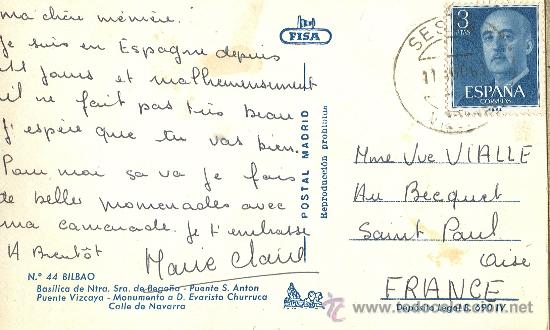 ma chère mémère.
Je suis en Espagne depuis
11 jours et malheureusement
il ne fait pas très beau
J'espère que tu vas bien.
Pour moi sa va je fais
de belles promenades avec
ma camarade. Je t'embrasse
A Bientôt Marie Claire
N.º 44 BILBAO
Basílica de Ntra. Sra. de Begoña - Puente S. Anton
Puente Vizcaya - Monumento a D. Evaristo Churruca
Calle de Navarra
FISA
POSTAL MADRID
Reproducción prohibida
3
PTAS
ESPAÑA
CORREOS
SES
11
Mme Vve VIALLE
Au Becquet
Saint Paul
Oise
FRANCE
Depósito Legal B. 690 IV
todocoleccion.net